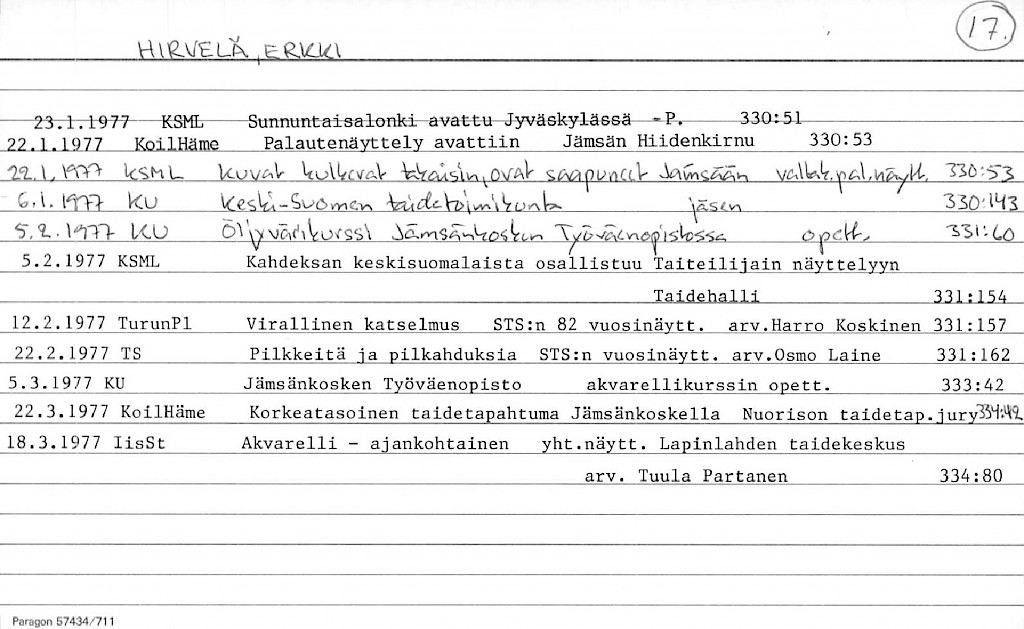 17.
HIRVELÄ, ERKKI
23.1.1977 KSML Sunnuntaisalonki avattu Jyväskylässä -P. 330:51
22.1.1977 KoilHäme Palautenäyttely avattiin Jämsän Hiidenkirnu 330:53
22.1.1977 KSML Kuvat kulkevat takaisin, ovat saapuneet Jämsään valtak.pal.näytt. 330:53
6.1.1977 KU Keski-Suomen taidetoimikunta jäsen 330:143
5.2.1977 KU Öljyvärikurssi Jämsänkosken Työväenopistossa opett. 331:60
5.2.1977 KSML Kahdeksan keskisuomalaista osallistuu Taiteilijain näyttelyyn
Taidehalli 331:154
12.2.1977 TurunPl Virallinen katselmus STS:n 82 vuosinäytt. arv.Harro Koskinen 331:157
22.2.1977 TS Pilkkeitä ja pilkahduksia STS:n vuosinäytt. arv.Osmo Laine 331:162
5.3.1977 KU Jämsänkosken Työväenopisto akvarellikurssin opett. 333:42
22.3.1977 KoilHäme Korkeatasoinen taidetapahtuma Jämsänkoskella Nuorison taidetap.jury 334:42
18.3.1977 IisSt Akvarelli - ajankohtainen yht.näytt. Lapinlahden taidekeskus
arv. Tuula Partanen 334:80
Paragon 57434/711